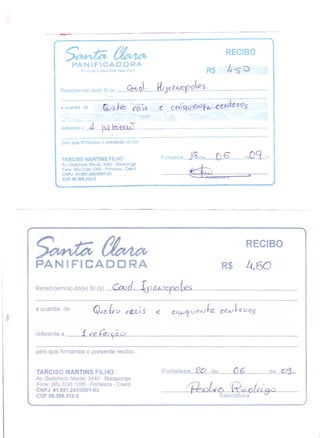 Santa Clara
PANIFICADORA
RECIBO
R$ 4,50
Recebi(emos) do(a) Sr.(a)
a quantia de Quatro reais e cinquenta centavos
referente a 1
pelo que firmamos o presente recibo.
TARCISO MARTINS FILHO
Av. Godofredo Maciel, 3440 - Maraponga
Fone: (85) 3295.1095 - Fortaleza - Ceará
CNPJ 41.561.243/0001-03
CGF 06.308.232-2
Fortaleza, 18 06 09
Santa Clara
PANIFICADORA
RECIBO
R$ 4,50
Recebi(emos) do(a) Sr.(a) Cond.
a quantia de Quatro reais e cinquenta centavos
referente a 1 refeição
pelo que firmamos o presente recibo.
TARCISO MARTINS FILHO
Av. Godofredo Maciel, 3440 - Maraponga
Fone: (85) 3295.1095 - Fortaleza - Ceará
CNPJ 41.561.243/0001-03
CGF 06.308.232-2
Fortaleza, 20 de 06 de 09
Pedro Rodrigo
Assinatura